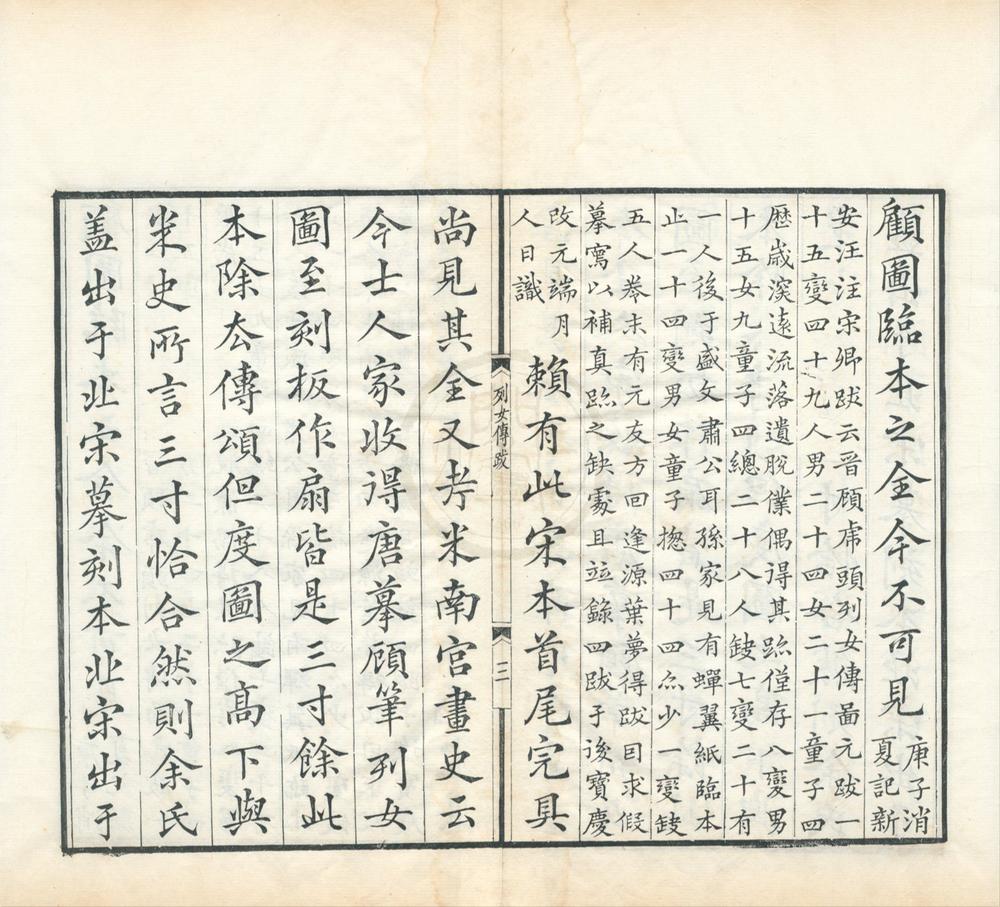 顧圖臨本之全今不可見庚子消
夏記新
安汪注宋卿跋云晋顧虎頭列女傳啚元跋一
十五變四十九人男二十四女二十一童子四
歷歲深遠流落遺脫僕偶得其跡僅存八變男
十五女九童子四總二十八人鈌七變二十有
一人後于盛文肅公耳孫家見有蟬翼紙臨本
止一十四變男女童子揔四十四亦少一變鈌
五人卷末有元友方回逢源葉夢得跋因求假
摹寫以補真跡之缺䖏且竝錄四跋于後寶慶
改元端月
人日識
賴有此宋本首尾完具
列女傳跋
三
尚見其全又考米南宫畫史云
今士人家收得唐摹顧筆列女
圖至刻板作扇皆是三寸餘此
本除去傳頌但度圖之高下與
米史所言三寸恰合然則余氏
盖出于北宋摹刻本北宋出于